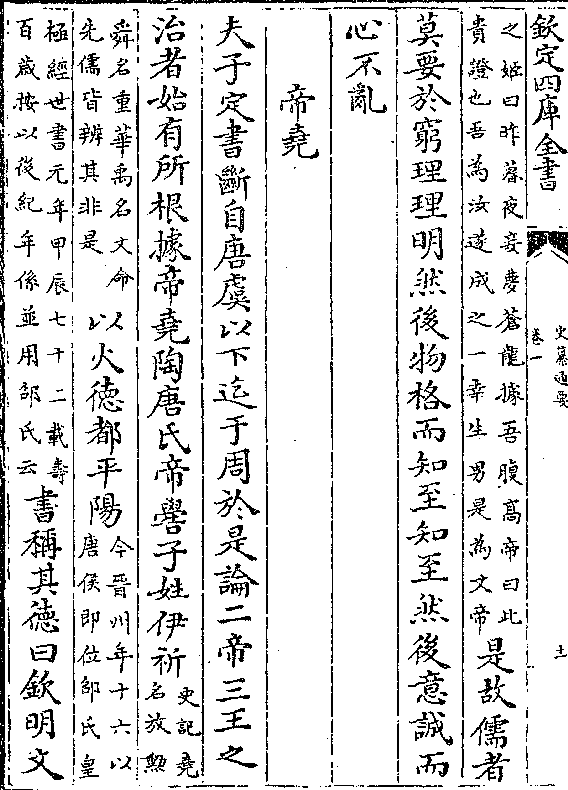 欽定四庫全書
史纂通要
卷一
十
之姬曰昨暮夜妾夢蒼龍據吾腹髙帝曰此
貴證也吾為汝遂成之一幸生男是為文帝
是故儒者
莫要於窮理理明然後物格而知至知至然後意誠而
心不亂
帝堯
夫子定書斷自唐虞以下迄于周於是論二帝三王之
治者始有所根據帝堯陶唐氏帝嚳子姓伊祈
史記堯
名放勲
舜名重華禹名文命
先儒皆辨其非是
以火徳都平陽
今晋州年十六以
唐侯即位邵氏皇
極經世書元年甲辰七十二載壽
百歲按以後紀年係並用邵氏云
書稱其徳曰欽明文